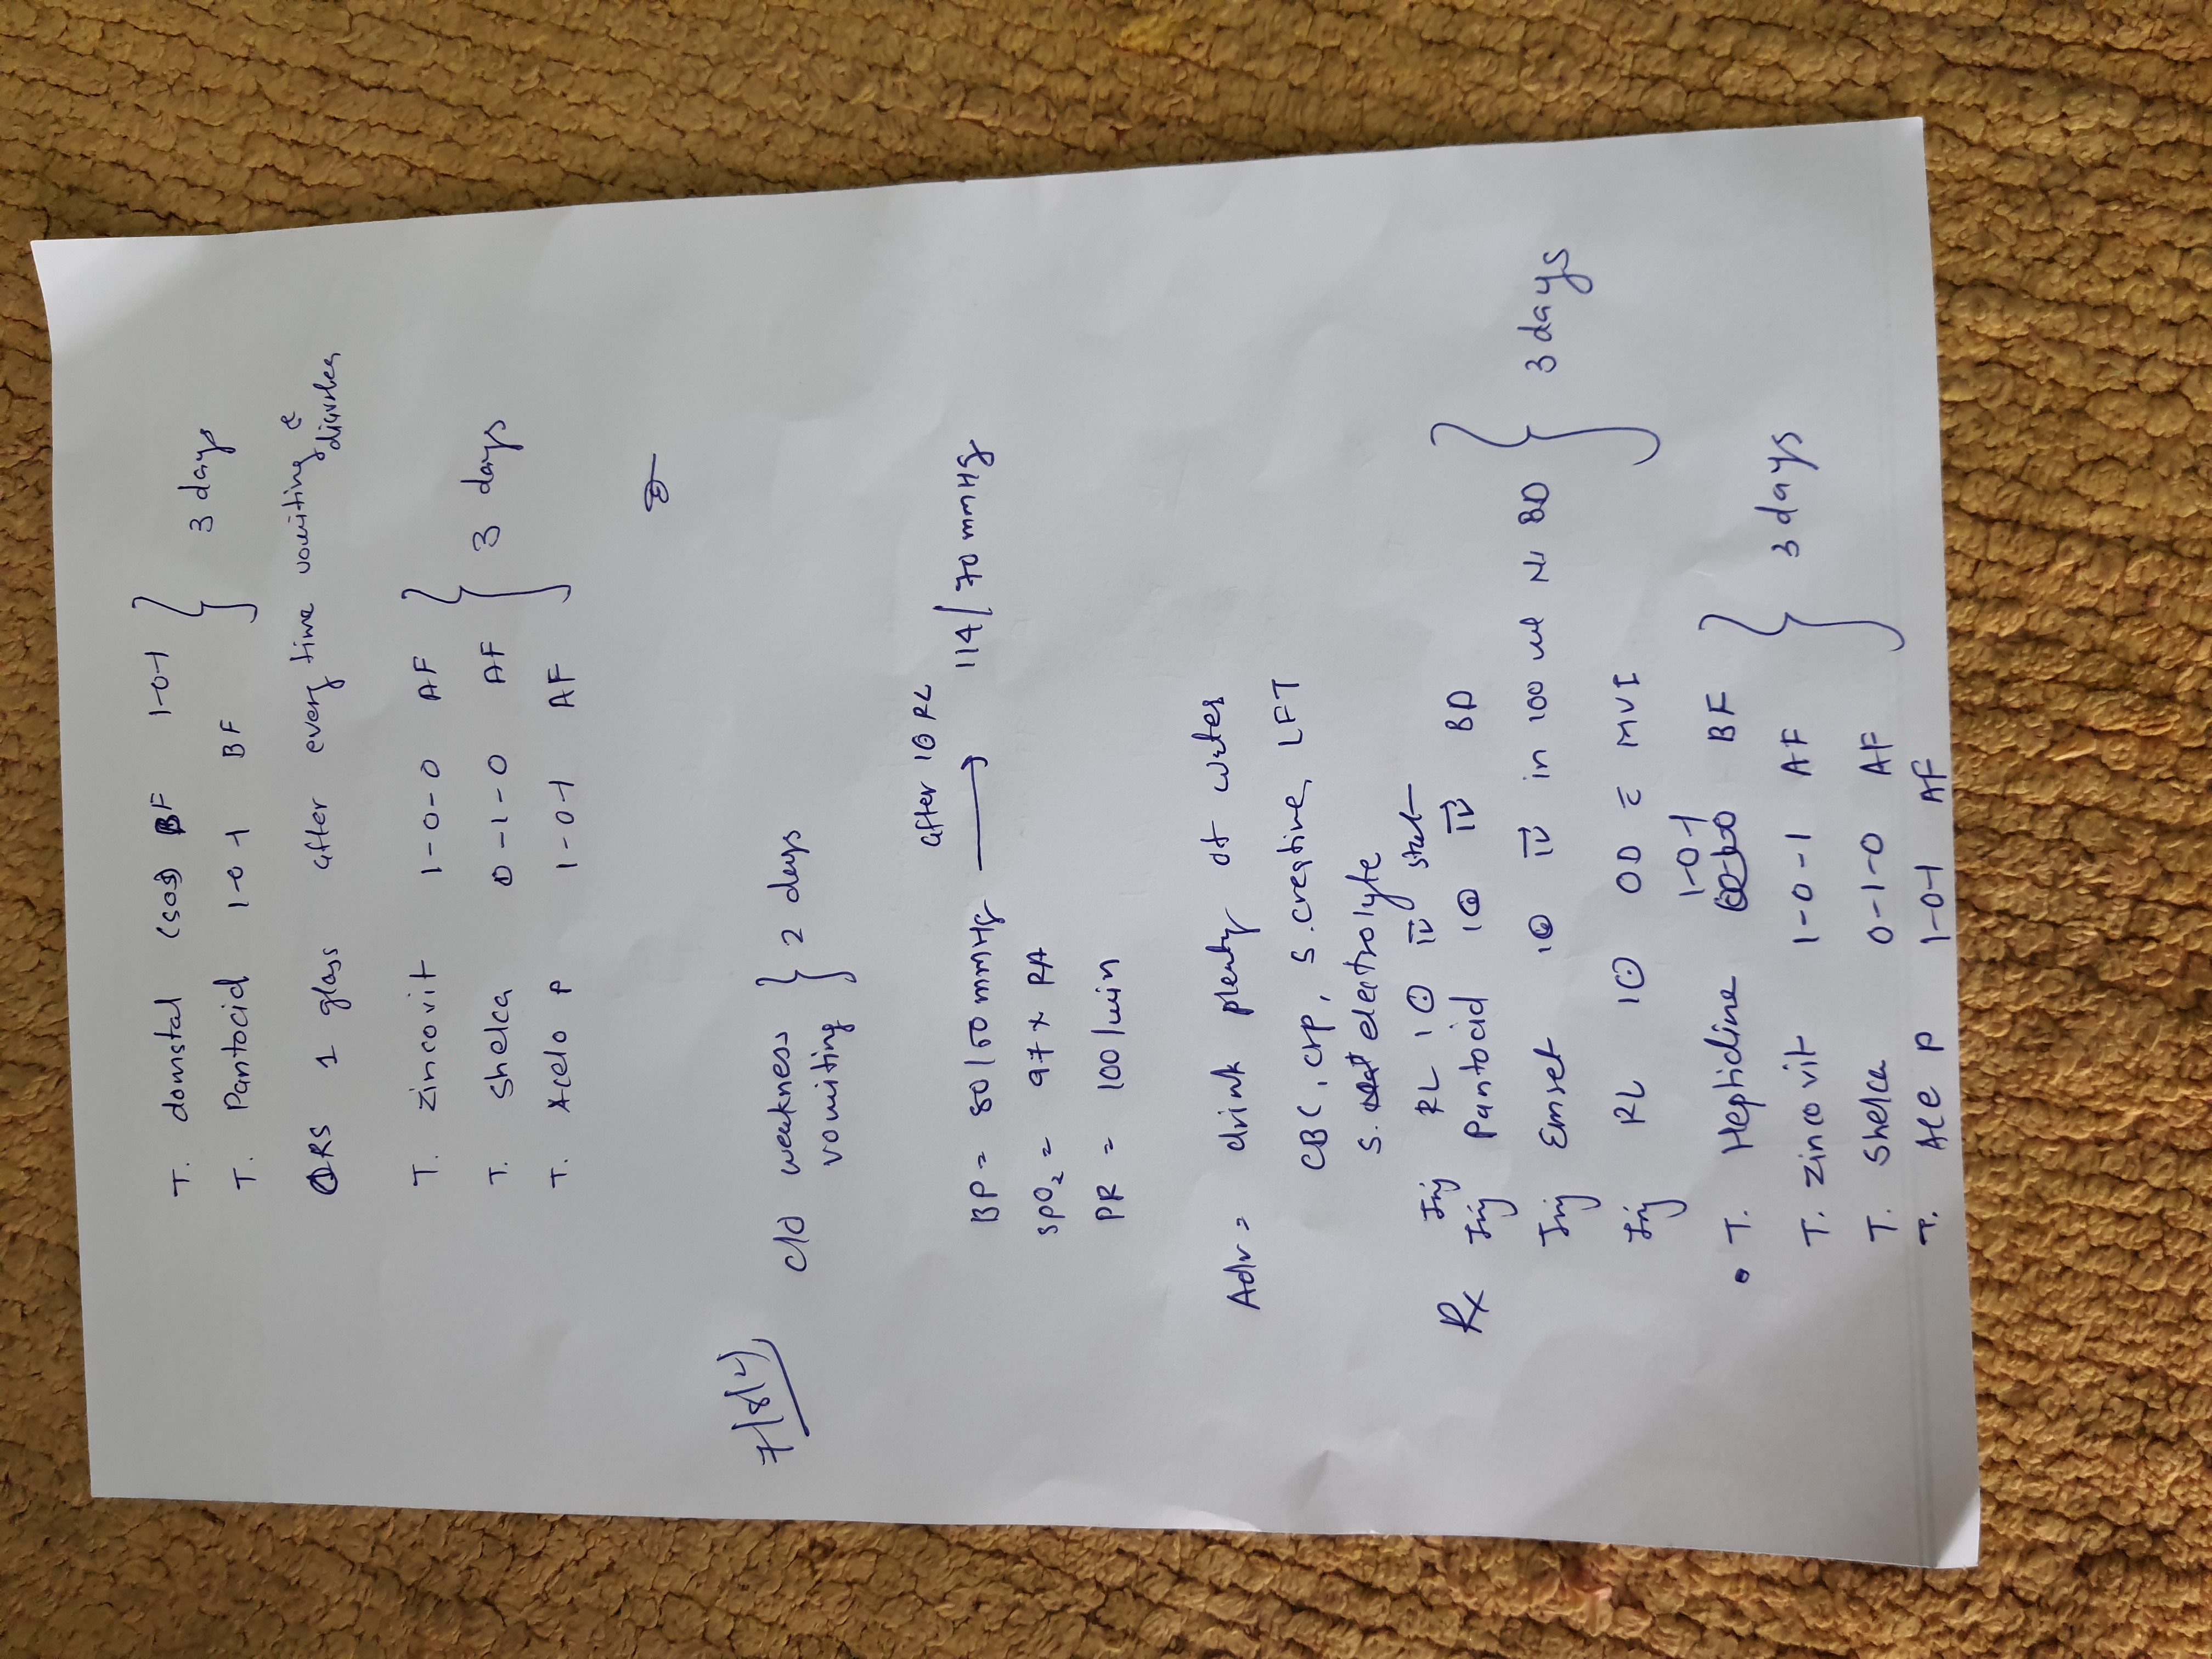 T. domstal (sos) BF 1-0-1 } 3 days
T. Pantocid 1-0-1 BF
ORS 1 glass after every time vomiting & diarrhea
T. zincovit 1-0-0 AF
T. shelca 0-1-0 AF } 3 days
T. Acelo P 1-0-1 AF
c/o weakness } 2 days
vomiting
after 1 RL
BP = 80/50 mmHg → 114/70 mmHg
SpO2 = 97 % RA
PR = 100/min
Adv = drink plenty of water
CBC, crp, s. creatine, LFT
S. electrolyte
Inj RL 1 IV stat
Rx Inj Pantocid 1 IV BD
Inj Emset 1 IV in 100 ml NS BD } 3 days
Inj RL 1 OD c MVI
1-0-1
• T. Heptidine BF
T. zincovit 1-0-1 AF } 3 days
T. Shelca 0-1-0 AF
T. Ace P 1-0-1 AF